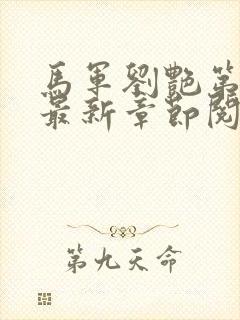 馬軍劉艷第
最新章節閱
第九天命